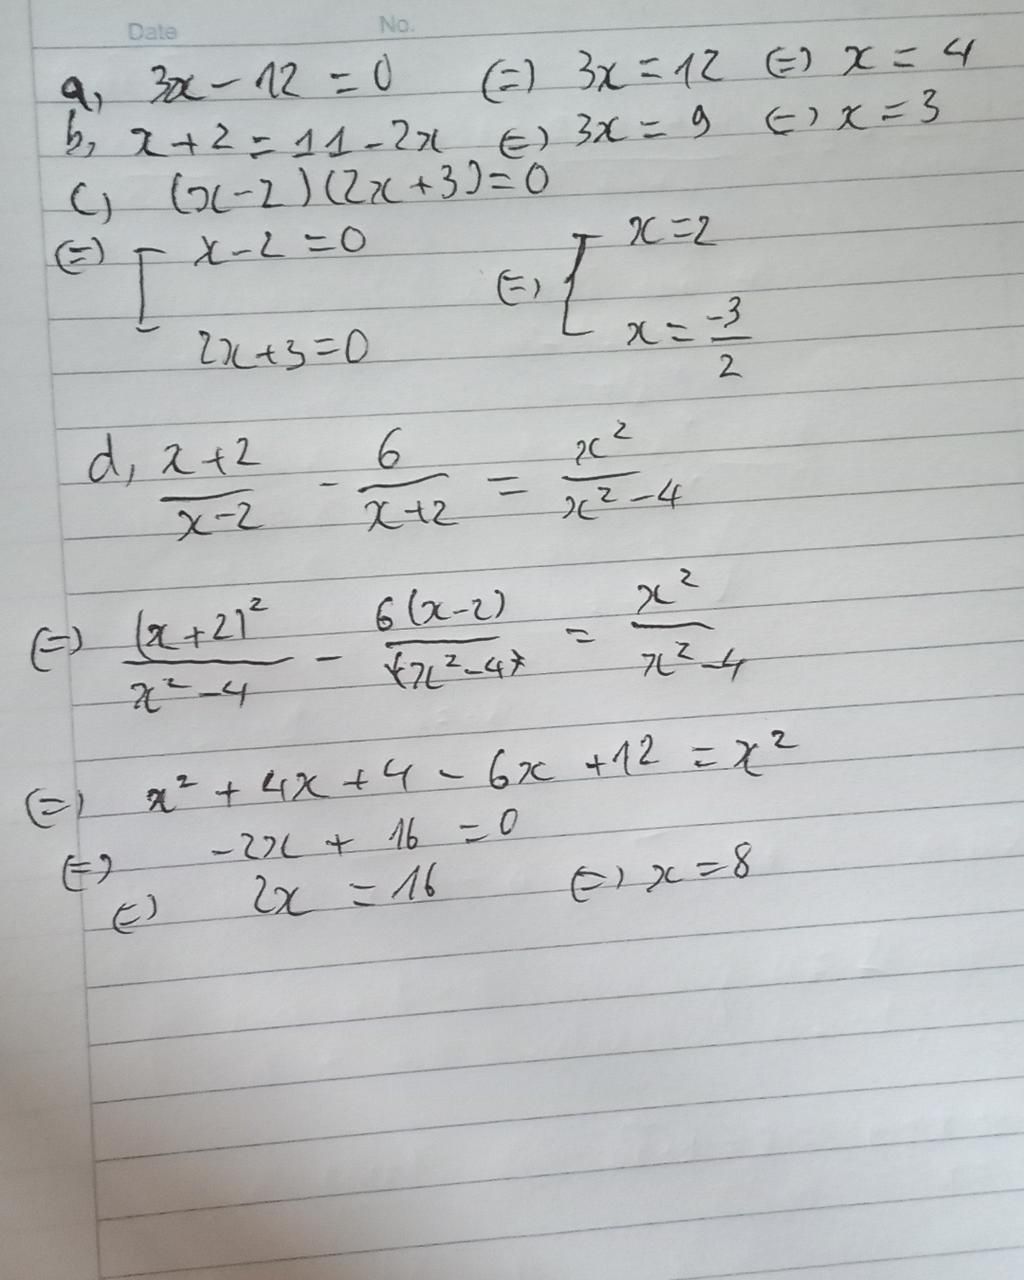 Date No.
a, 3x - 12 = 0 (=) 3x = 12 (=) x = 4
b, x + 2 = 11 - 2x (=) 3x = 9 (=) x = 3
c, (x - 2)(2x + 3) = 0
(=) [ x - 2 = 0 (=) [ x = 2
2x + 3 = 0 x = -3/2
d, (x+2)/(x-2) - 6/(x+2) = x²/(x²-4)
(=) (x+2)²/(x²-4) - 6(x-2)/(x²-4) = x²/(x²-4)
(=) x² + 4x + 4 - 6x + 12 = x²
(=) -2x + 16 = 0
(=) 2x = 16 (=) x = 8